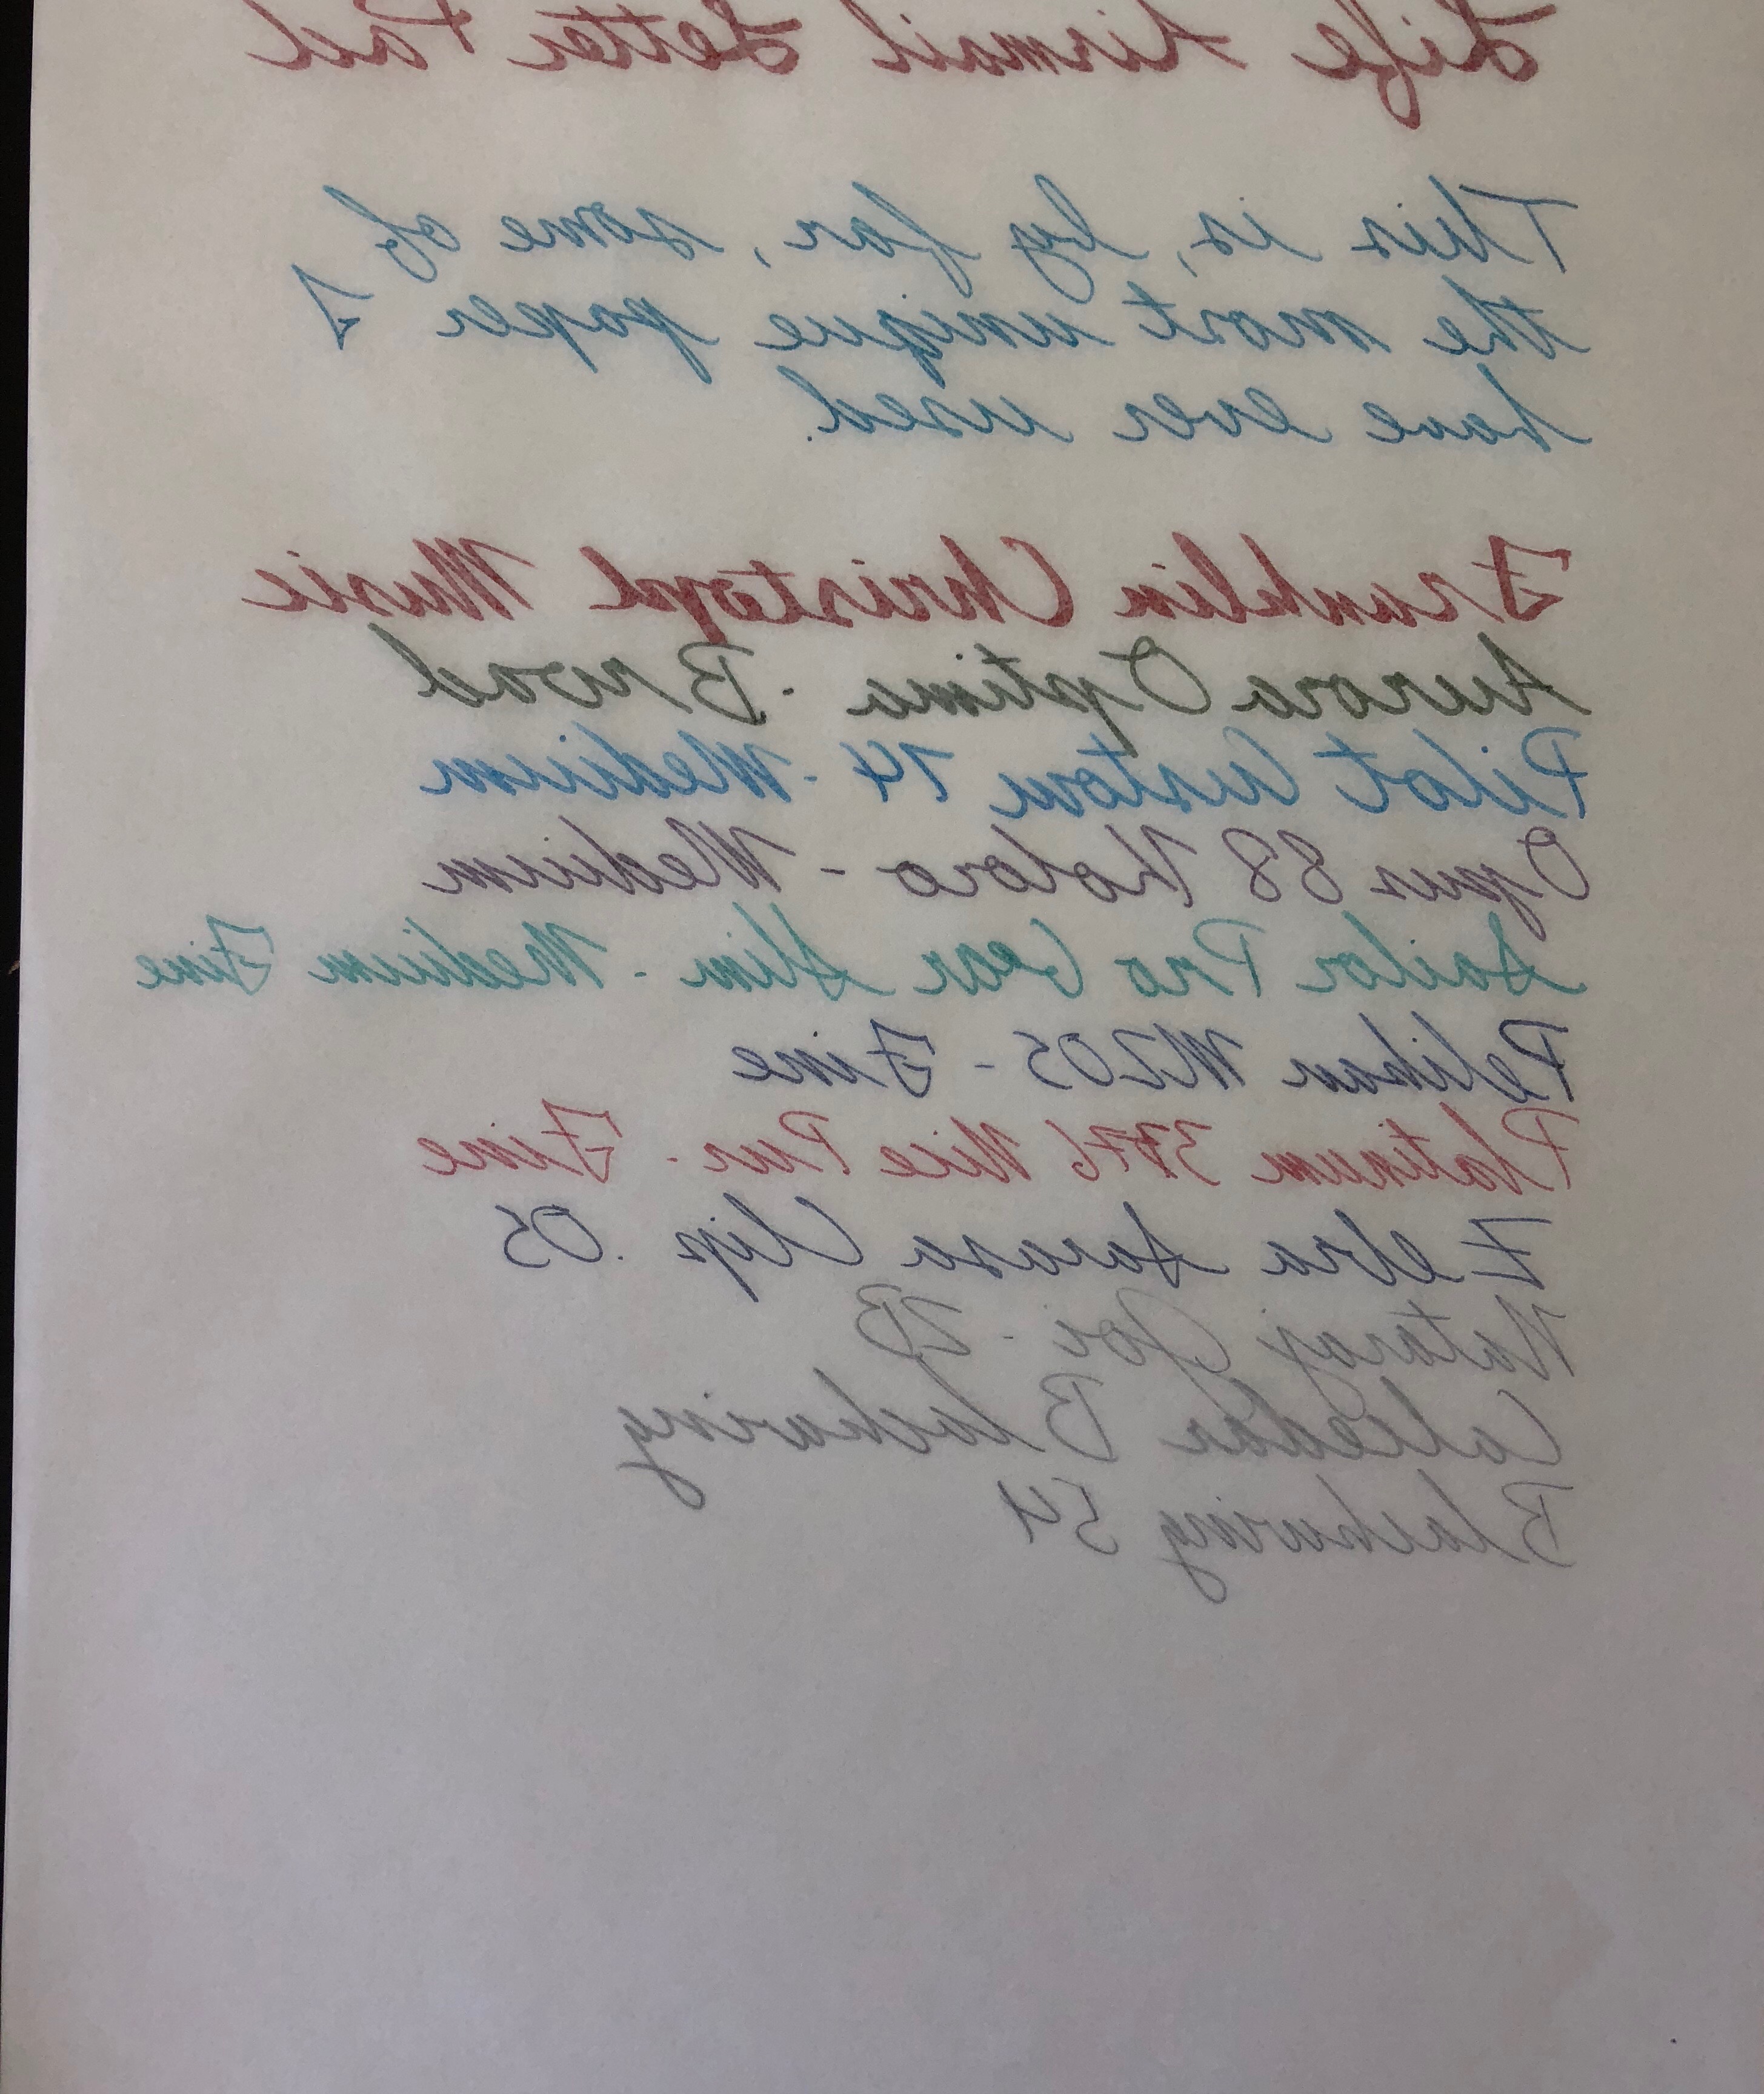 Life Airmail Letter Pad
This is, by far, some of
the most unique paper I
have ever used.
Franklin Christoph Music
Aurora Optima - Broad
Pilot Custom 74 - Medium
Opus 88 Koloro - Medium
Sailor Pro Gear Slim - Medium Fine
Pelikan M205 - Fine
Platinum 3776 Nice Pur - Fine
Zebra Sarasa Clip .05
Nataraj Joi - 2B
Caledar Blackwing
Blackwing 54